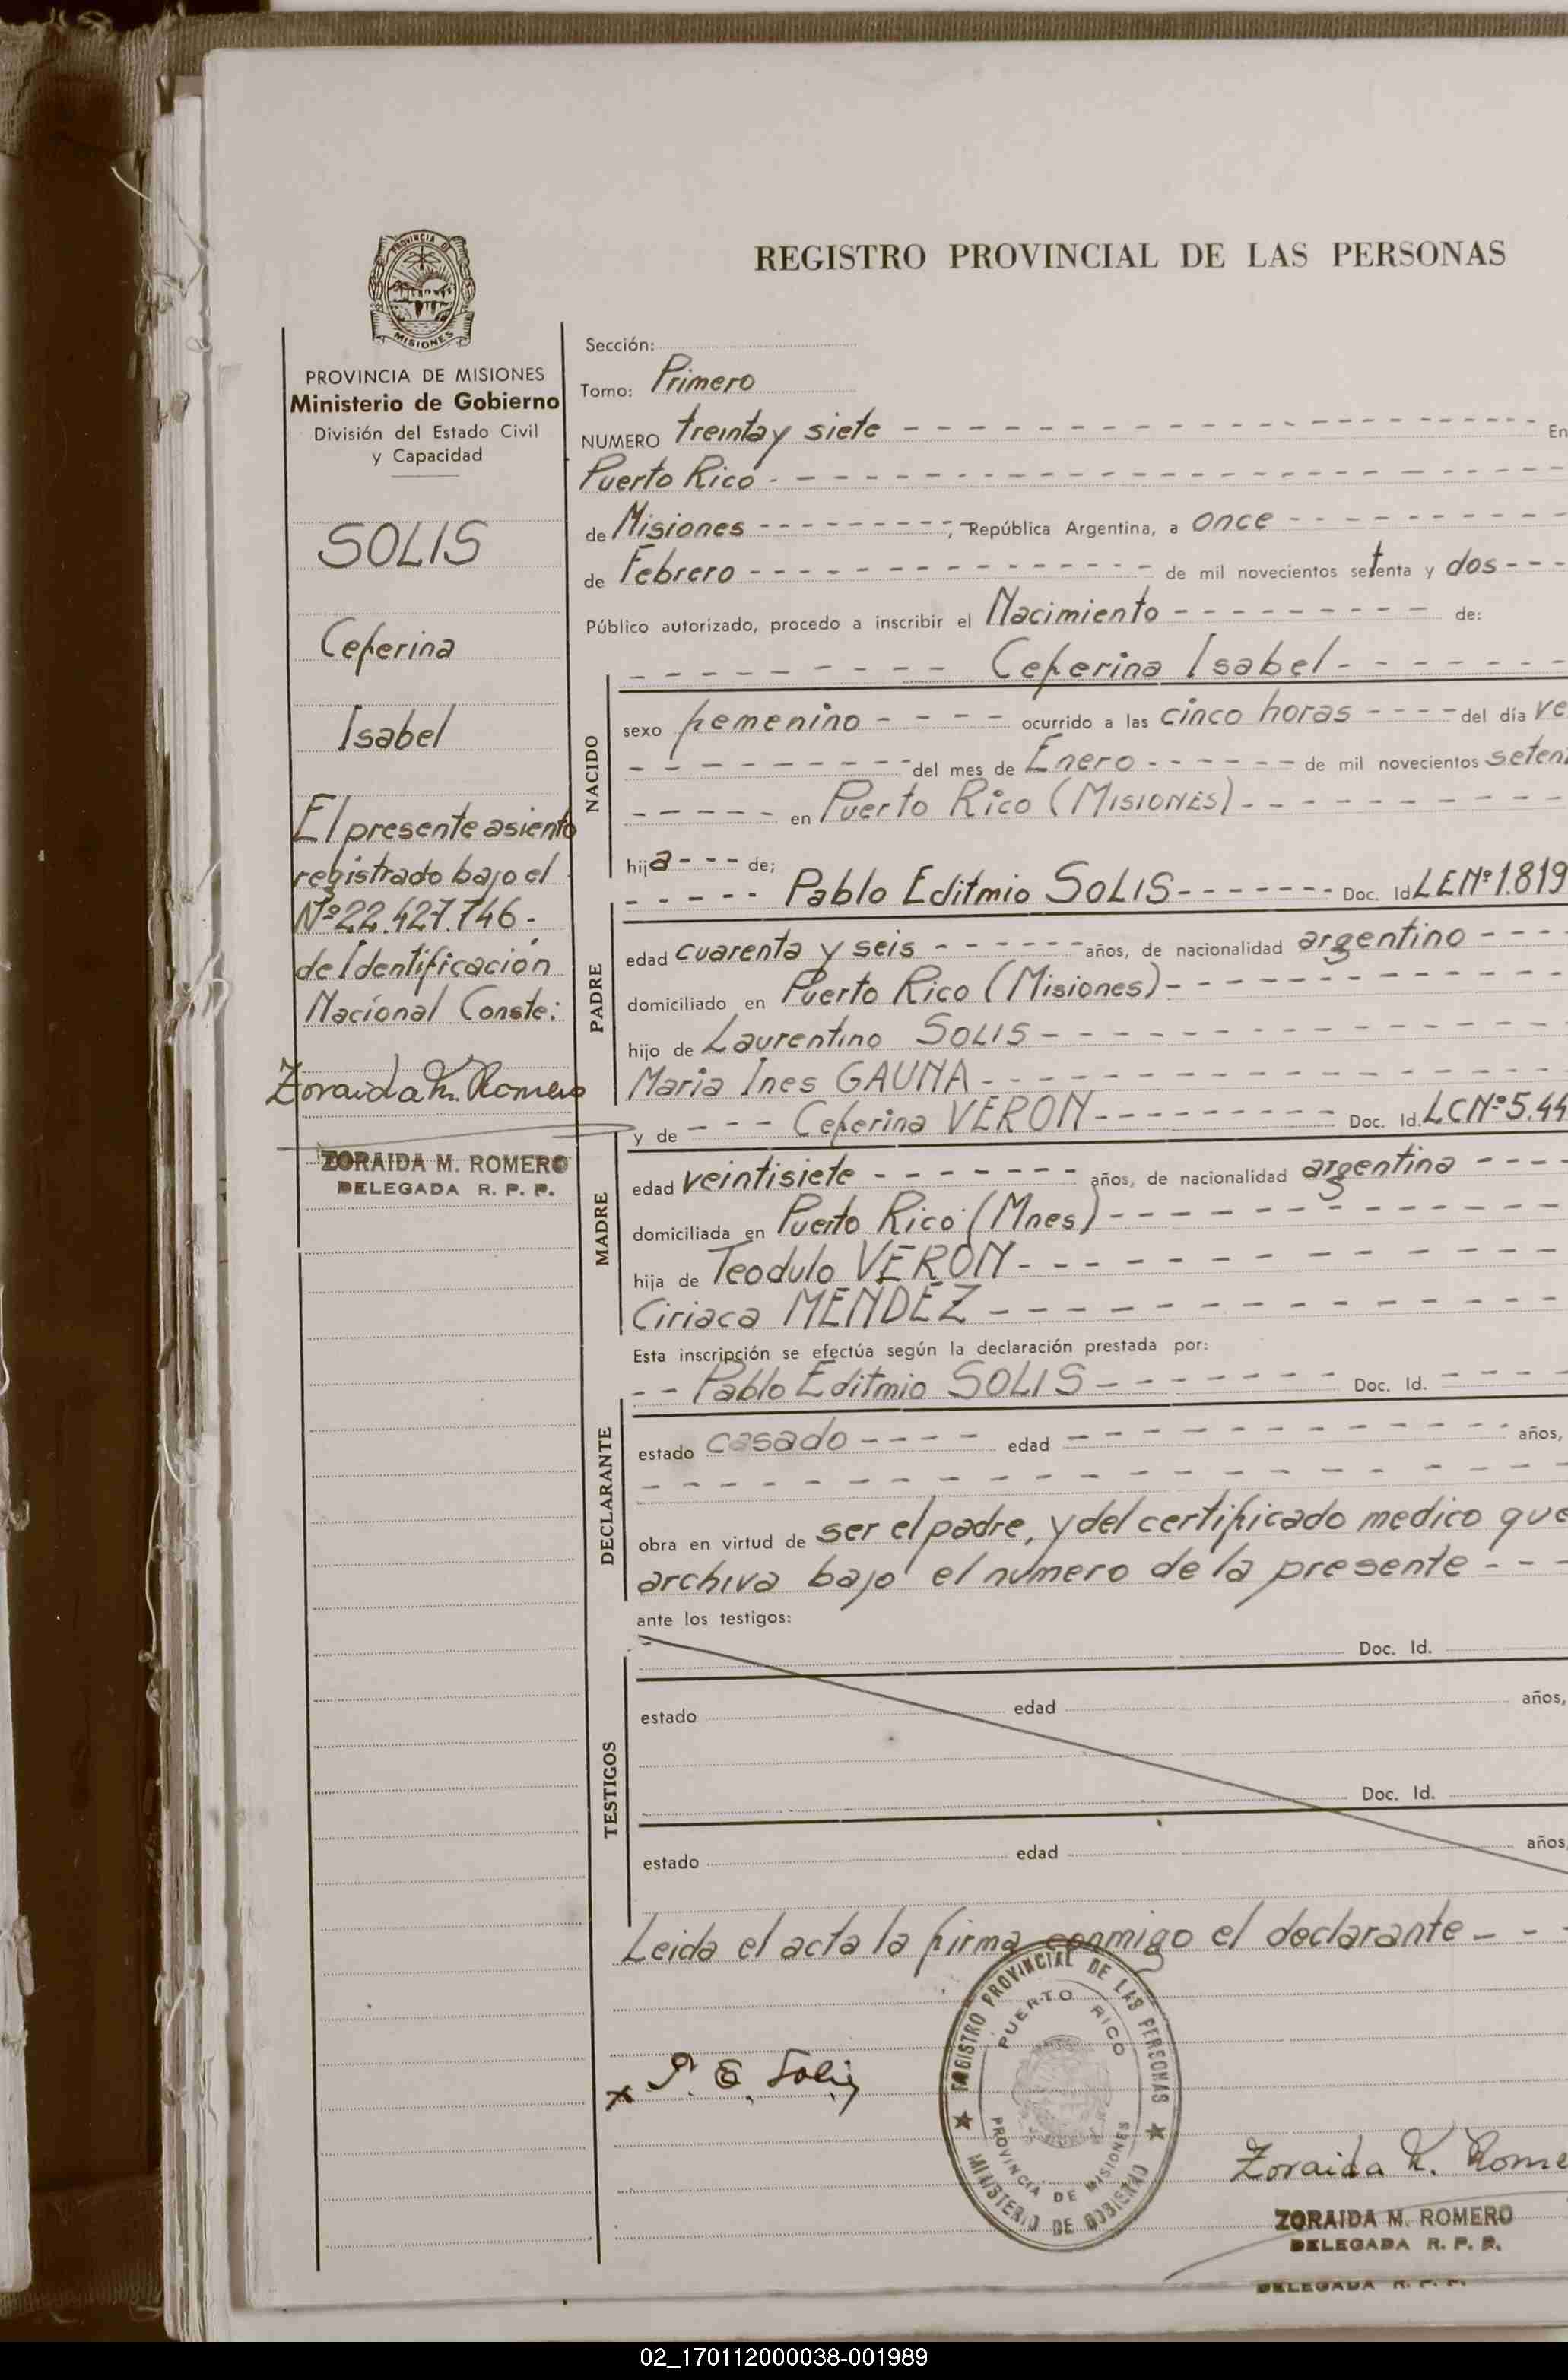 PROVINCIA DE
MISIONES
PROVINCIA DE MISIONES
Ministerio de Gobierno
División del Estado Civil
y Capacidad
SOLIS
Ceferina
Isabel
El presente asiento
registrado bajo el
Nº 22.427.746.
de Identificación
Nacional Conste:
Zoraida M. Romero
ZORAIDA M. ROMERO
DELEGADA R. P. P.
REGISTRO PROVINCIAL DE LAS PERSONAS
Sección:
Tomo: Primero
NUMERO treinta y siete En
Puerto Rico
de Misiones, República Argentina, a once
de Febrero de mil novecientos setenta y dos
Público autorizado, procedo a inscribir el Nacimiento de:
NACIDO
Ceferina Isabel
sexo femenino ocurrido a las cinco horas del día ve
del mes de Enero de mil novecientos seten
en Puerto Rico (MISIONES)
hija de;
PADRE
Pablo Editmio SOLIS Doc. Id LE Nº 1.819
edad cuarenta y seis años, de nacionalidad argentino
domiciliado en Puerto Rico (Misiones)
hijo de Laurentino SOLIS
Maria Ines GAUNA
MADRE
y de Ceferina VERON Doc. Id. LC Nº 5.44
edad veintisiete años, de nacionalidad argentina
domiciliada en Puerto Rico (Mnes)
hija de Teodulo VERON
Ciriaca MENDEZ
Esta inscripción se efectúa según la declaración prestada por:
DECLARANTE
Pablo Editmio SOLIS Doc. Id.
estado casado edad años,
obra en virtud de ser el padre, y del certificado medico que
archiva bajo el número de la presente
ante los testigos:
TESTIGOS
Doc. Id.
estado edad años,
Doc. Id.
estado edad años,
Leida el acta la firma conmigo el declarante
REGISTRO PROVINCIAL DE LAS PERSONAS
PUERTO RICO
PROVINCIA DE MISIONES
MINISTERIO DE GOBIERNO
x P. E. Solis
Zoraida M. Rome
ZORAIDA M. ROMERO
DELEGADA R. P. P.
DELEGADA R. P. P.
02_170112000038-001989